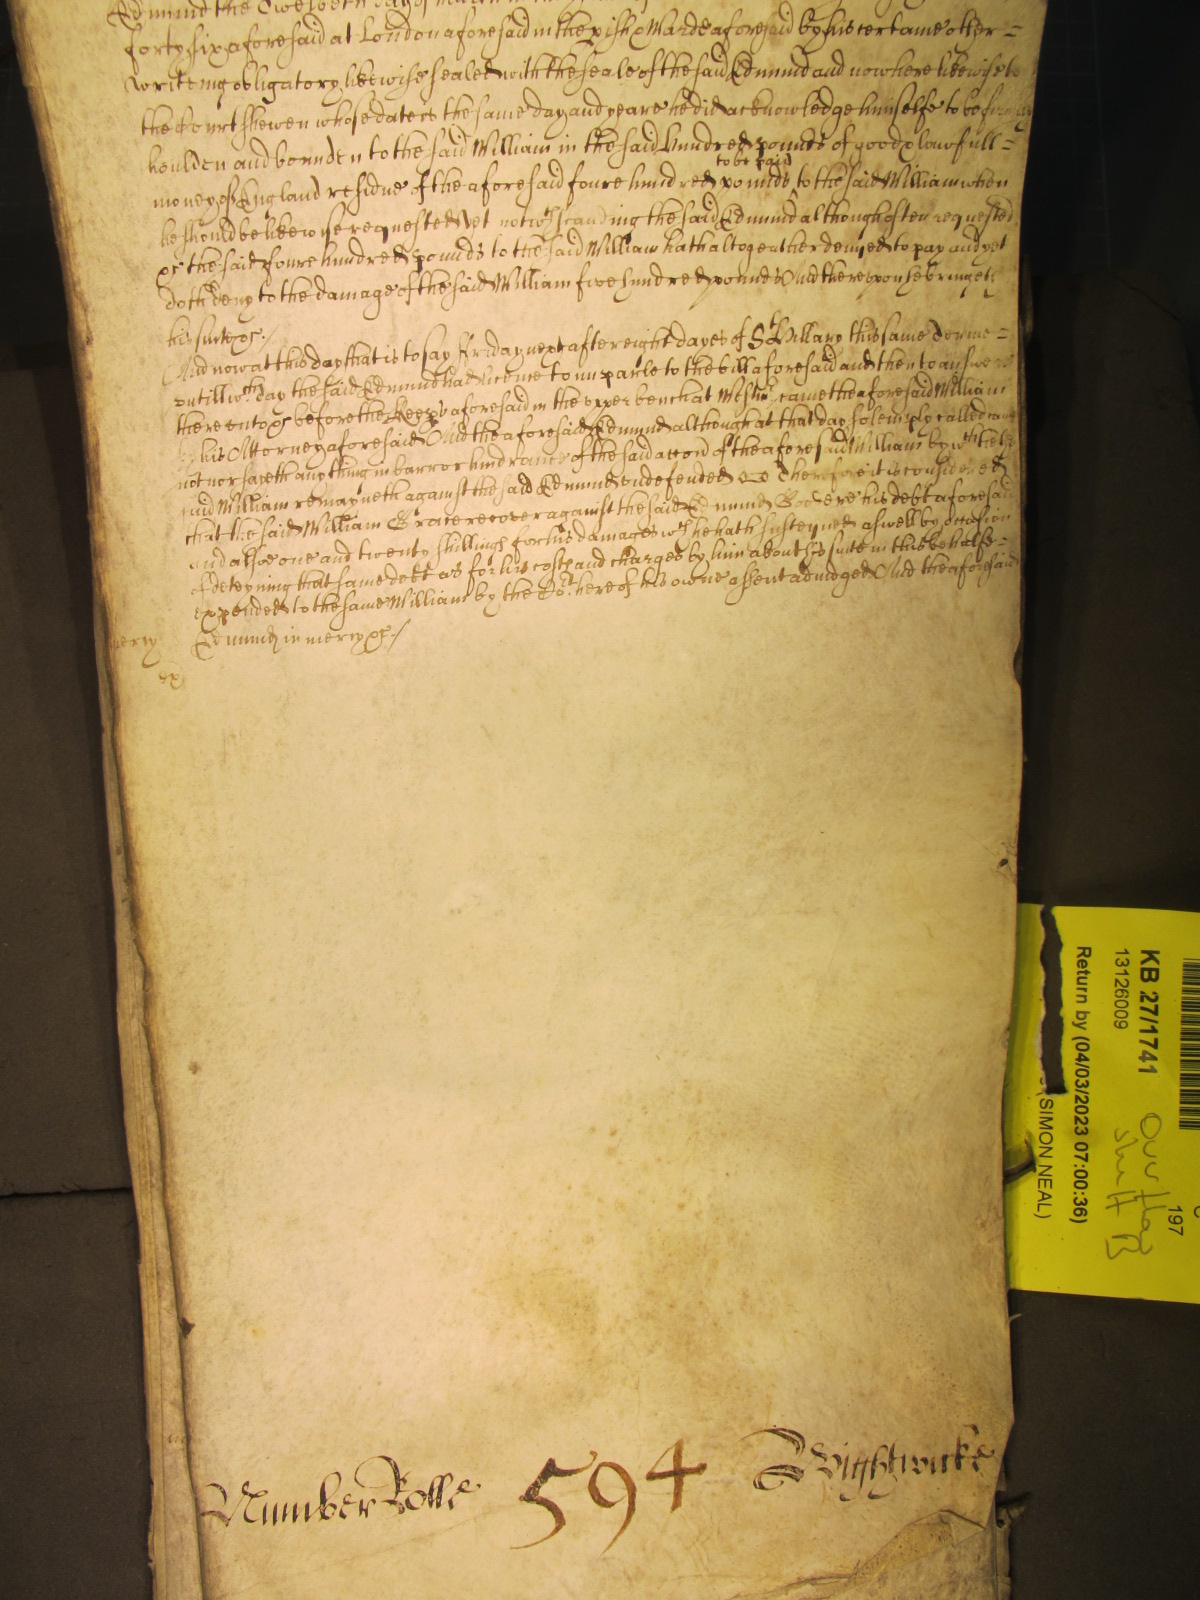 Edmund the Twelveth day of
forty six aforesaid at London aforesaid in the pish & Warde aforesaid by his certaine other =
writeing obligatory likewise sealed with the seale of the said Edmund and now here likewise to
the Court shewen whose date is the same day and yeare he did acknowledge himselfe to be firmely
houlden and bounden to the said William in the said hundred pounds of good & lawfull =
money of England residue of the aforesaid foure hundred pounds to be paid to the said William when
he should be likewise requested Yet notwthstanding the said Edmund although often requested
&c the said foure hundred pounds to the said William hath altogeather denyed to pay and yet
doth deny to the damage of the said William five hundred pounds And thereupon he bringeth
his suite &c /
And now at this day that is to say Friday next after eight dayes of St Hillary this same Terme =
untill wch day the said Edmund had licence to imparle to the bill aforesaid and then to answere
thereunto &c before the Keeps aforesaid in the upper bench at Westmr came the aforesaid William
by his Attorney aforesaid And the aforesaid Edmund although at that day solemply called came
not nor sayeth anything in barr or hindrance of the said accon of the aforesaid William by wch the
said William remayneth against the said Edmund undefended &c Therefore it is considered
that the said William Grace recover against the said Edmund his debt aforesaid
and alsoe one and twenty shillings for his damages wch he hath susteyned aswell by occasion
of deteyning that same debt as for his costs and charges by him about his suite in this behalfe =
expended to the same William by the Cort here of his owne assent adiudged And the aforesaid
Edmund in mercy &c /
mercy
ex
Number Rolle 594 Wightwicke
KB 27/1741
13126009
Return by (04/03/2023 07:00:36)
(SIMON NEAL)
197